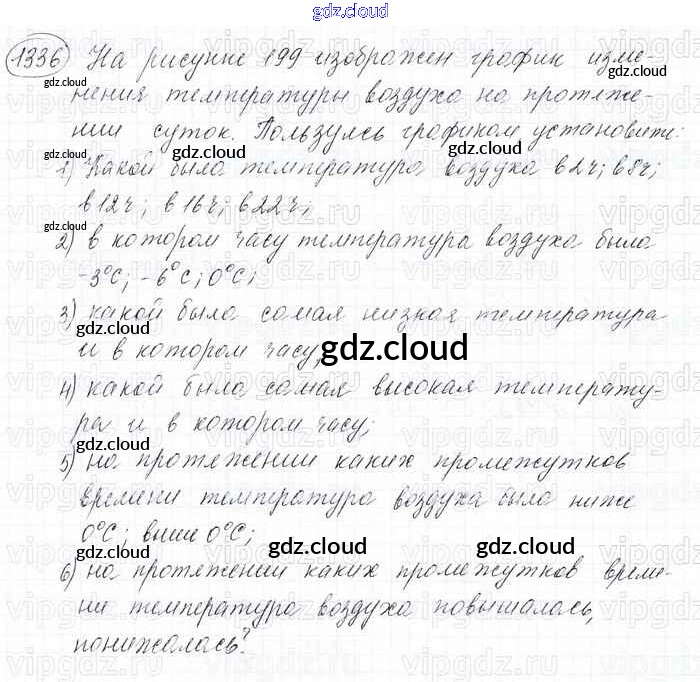 gdz.cloud
1336) На рисунке 199 изображен график изме-
нения температуры воздуха на протяже-
нии суток. Пользуясь графиком установите:
1) Какой была температура воздуха в 2ч; в 8ч;
в 12ч; в 16ч; в 22ч;
2) в котором часу температура воздуха была
-3°С; -6°С; 0°С;
3) какой была самая низкая температура
и в котором часу;
4) какой была самая высокая температу-
ра и в котором часу;
5) на протяжении каких промежутков
времени температура воздуха была ниже
0°С; выше 0°С;
6) на протяжении каких промежутков време-
ни температура воздуха повышалась,
понижалась?